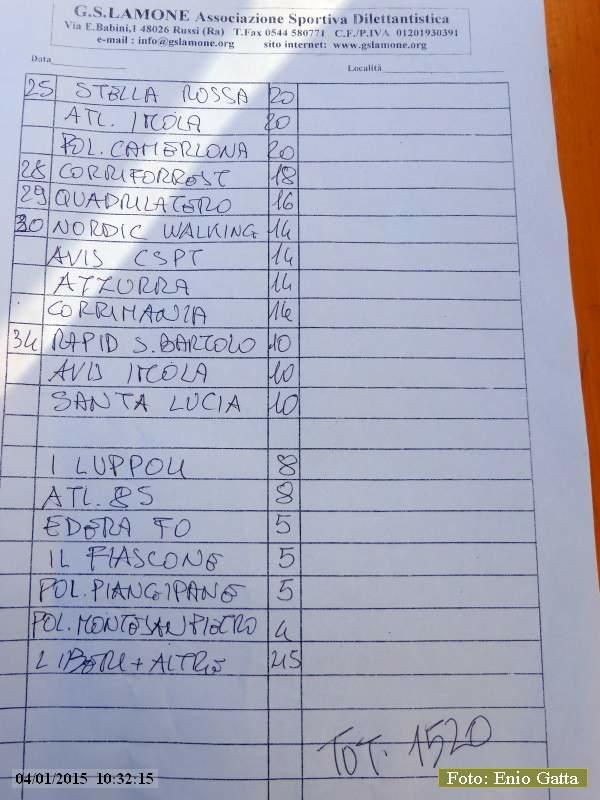 G.S.LAMONE Associazione Sportiva Dilettantistica
Via E.Babini,1 48026 Russi (Ra) T.Fax 0544 580771 C.F./P.IVA 01201930391
e-mail : info@gslamone.org sito internet: www.gslamone.org
Data Località
25 STELLA ROSSA 20
ATL. IMOLA 20
POL. CAMERLONA 20
28 CORRIFORREST 18
29 QUADRILATERO 16
30 NORDIC WALKING 14
AVIS CSPT 14
AZZURRA 14
CORRIMANIA 14
34 RAPID S. BARTOLO 10
AVIS IMOLA 10
SANTA LUCIA 10
I LUPPOLI 8
ATL. 85 8
EDERA FO 5
IL FIASCONE 5
POL. PIANGIPANE 5
POL. MONTESANPIETRO 4
LIBERI + ALTRI 215
TOT. 1520
04/01/2015 10:32:15
Foto: Enio Gatta